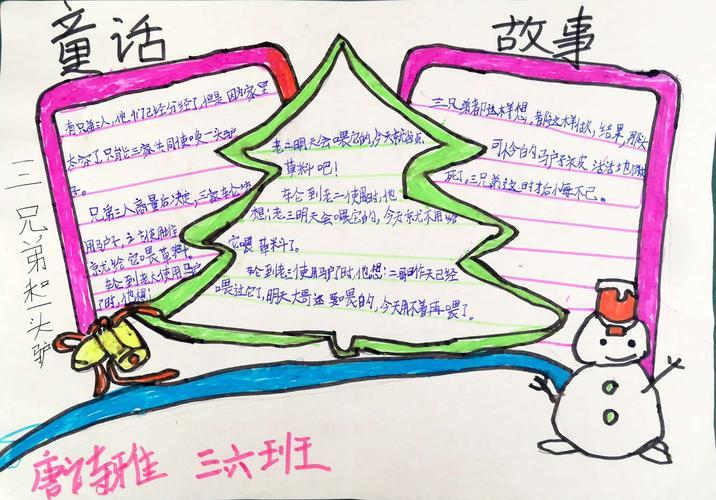 童话
故事
三兄弟和一头驴
有兄弟三人,他们已经分经了,但是因为家里
太穷了只能三家共同使唤一头驴
子。
兄弟三人商量后决定,三家轮流
用驴子,
就给它喂草料。
轮到老大使用驴子
了时,他想:
老二明天会喂它的,今天就省点
草料吧!
轮到老二使用时,他
想:老三明天会喂它的,今天就不用给
它喂草料了。
轮到老三使用驴子时,他想:二哥昨天已经
喂过它了,明天大哥还要喂的,今天用不着再喂了。
三兄弟都这样想,都这样做,结果,那头
可怜的驴子 活活地饿
死了,三兄弟这时才后悔不已。
唐诗雅 三六班